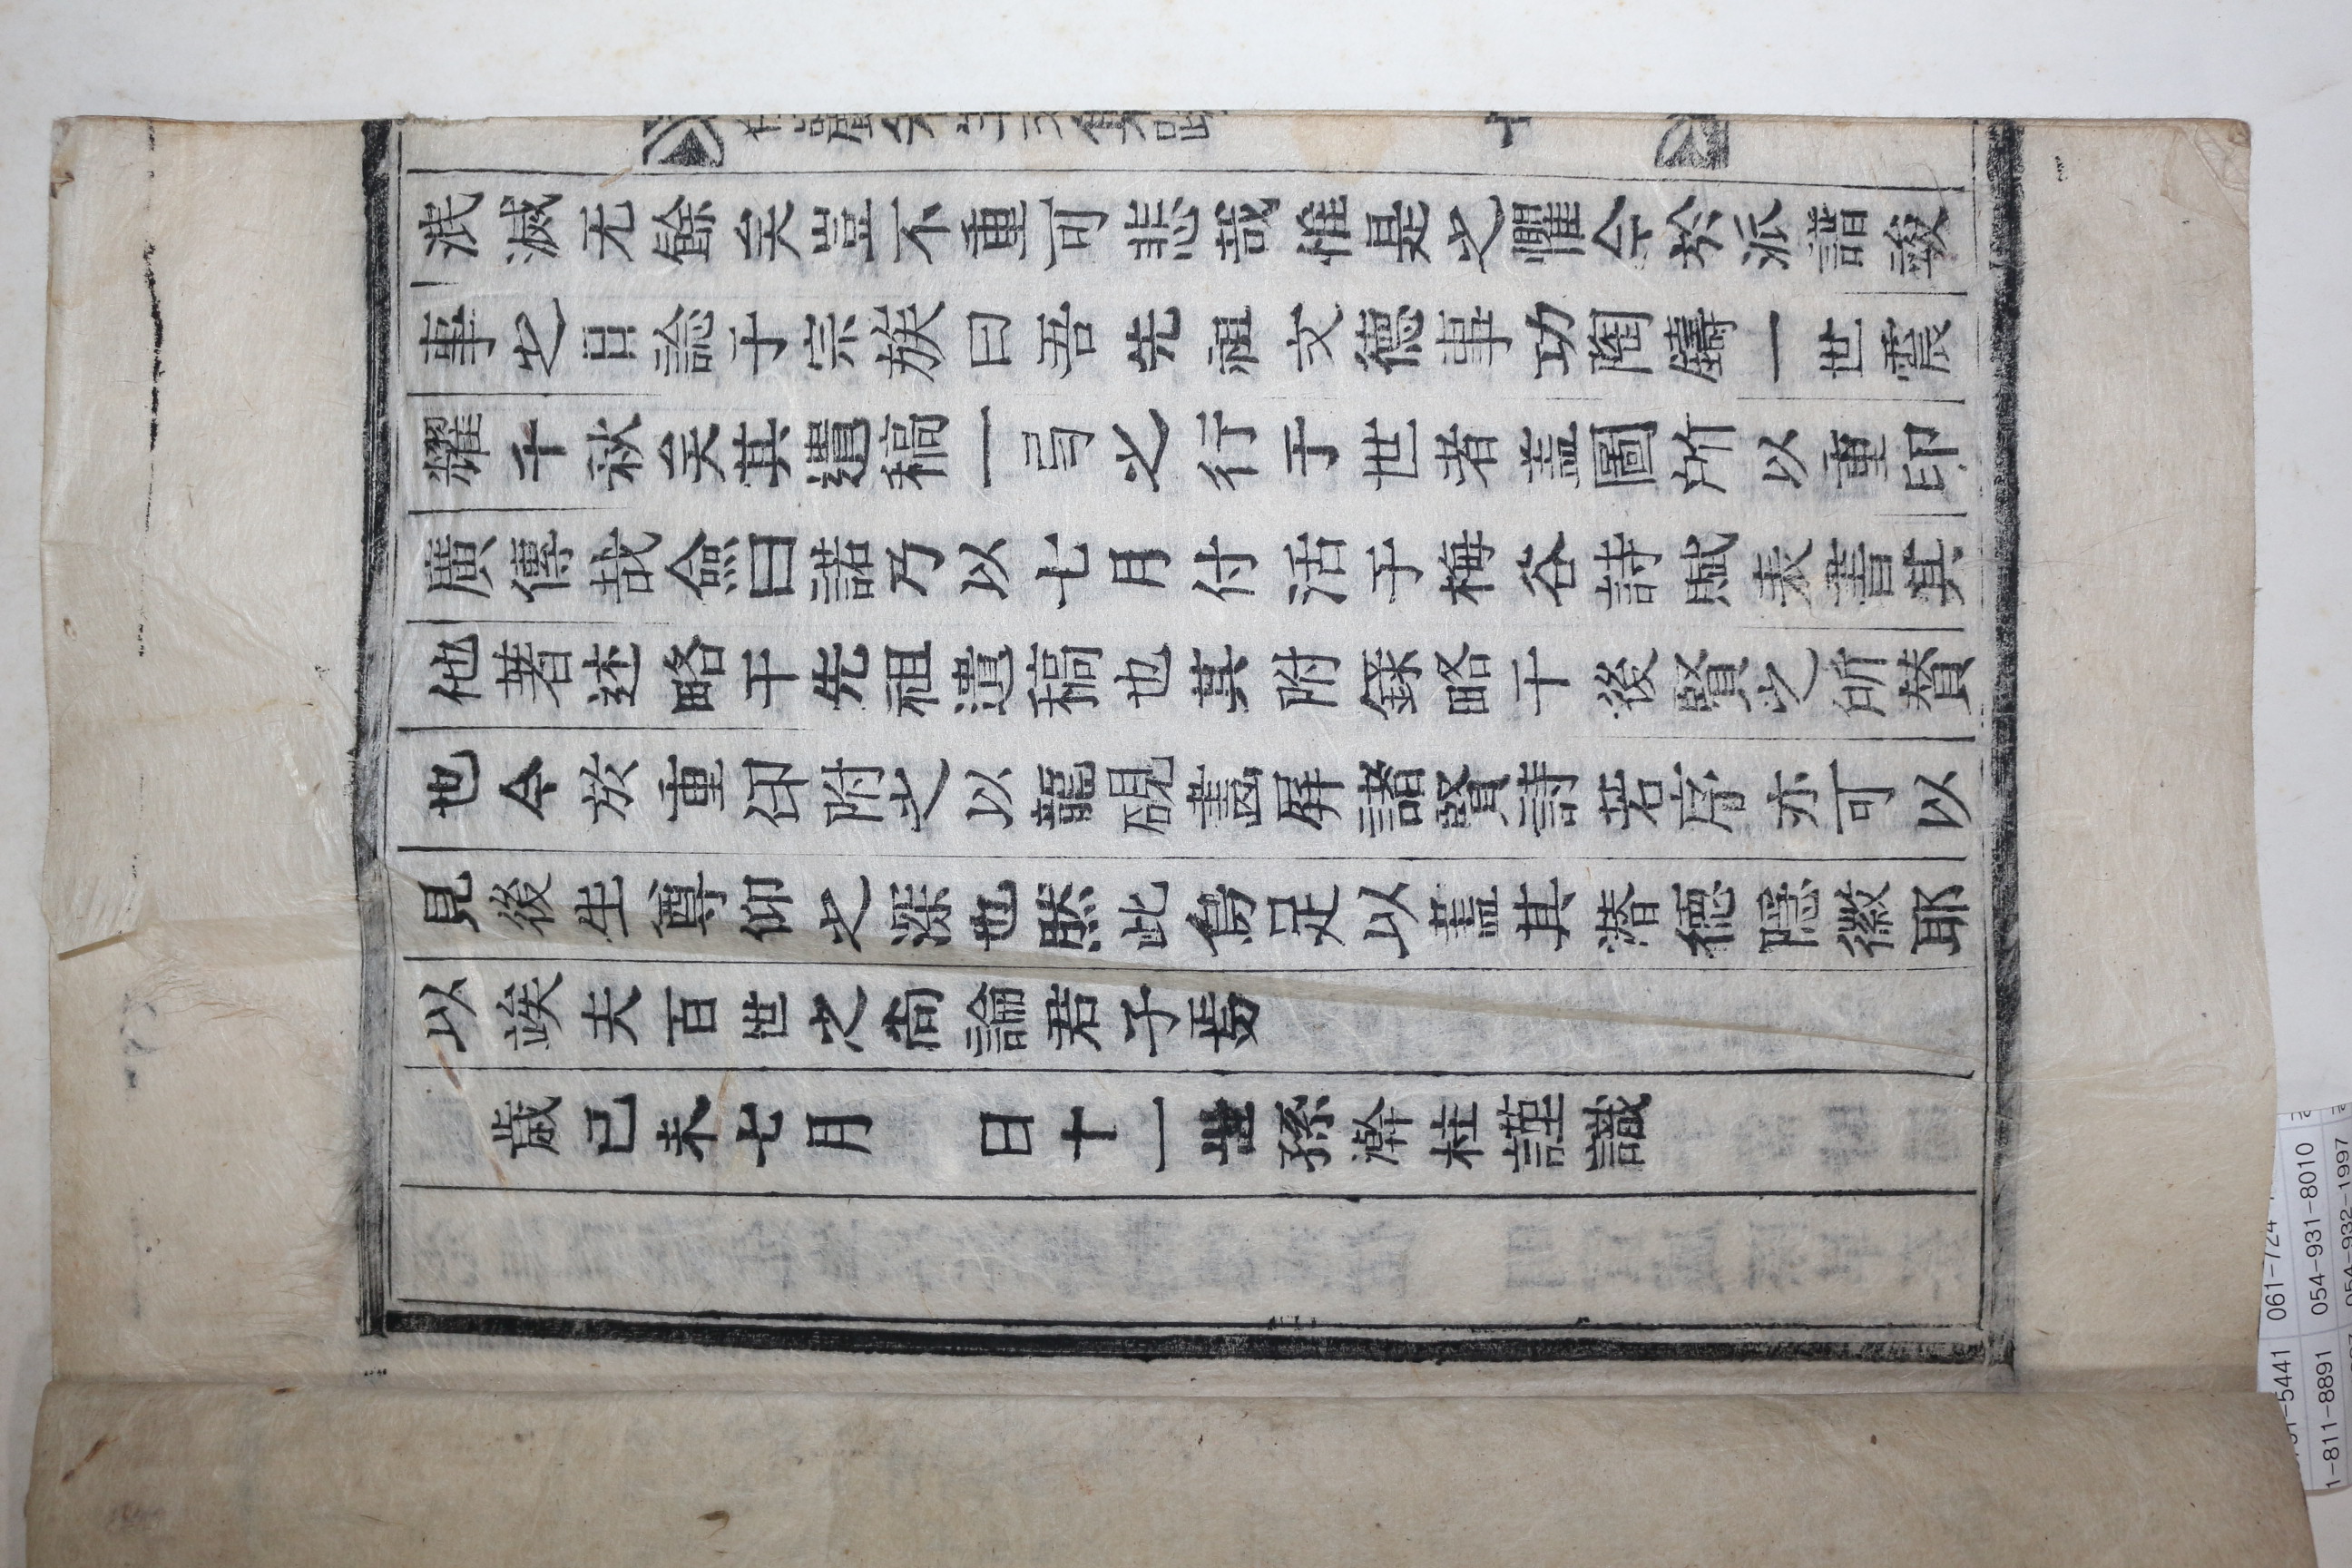 泯滅无餘矣豈不重可悲哉惟是之懼今於派譜竣
事之日諗于宗族曰吾先祖文德事功陶鑄一世震
耀千秋矣其遺稿一号必行于世者盖圖所以重印
廣傳哉僉曰諾乃以七月付活于梅谷詩賦表書其
他著述略干先祖遺稿也其附錄略干後賢之所贊
也今於重印附之以龍硯畵屛諸賢詩若序亦可以
見後生尊仰之深也然此烏足以盖其潜德隱徽耶
以竢夫百世之尙論君子焉
歲己未七月 日十一世孫澣柱謹識
061-724
054-931-8010
5441
1-811-8891
054-932-1997